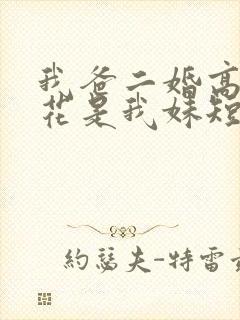 我爸二婚高
花是我妹短
约瑟夫-特雷